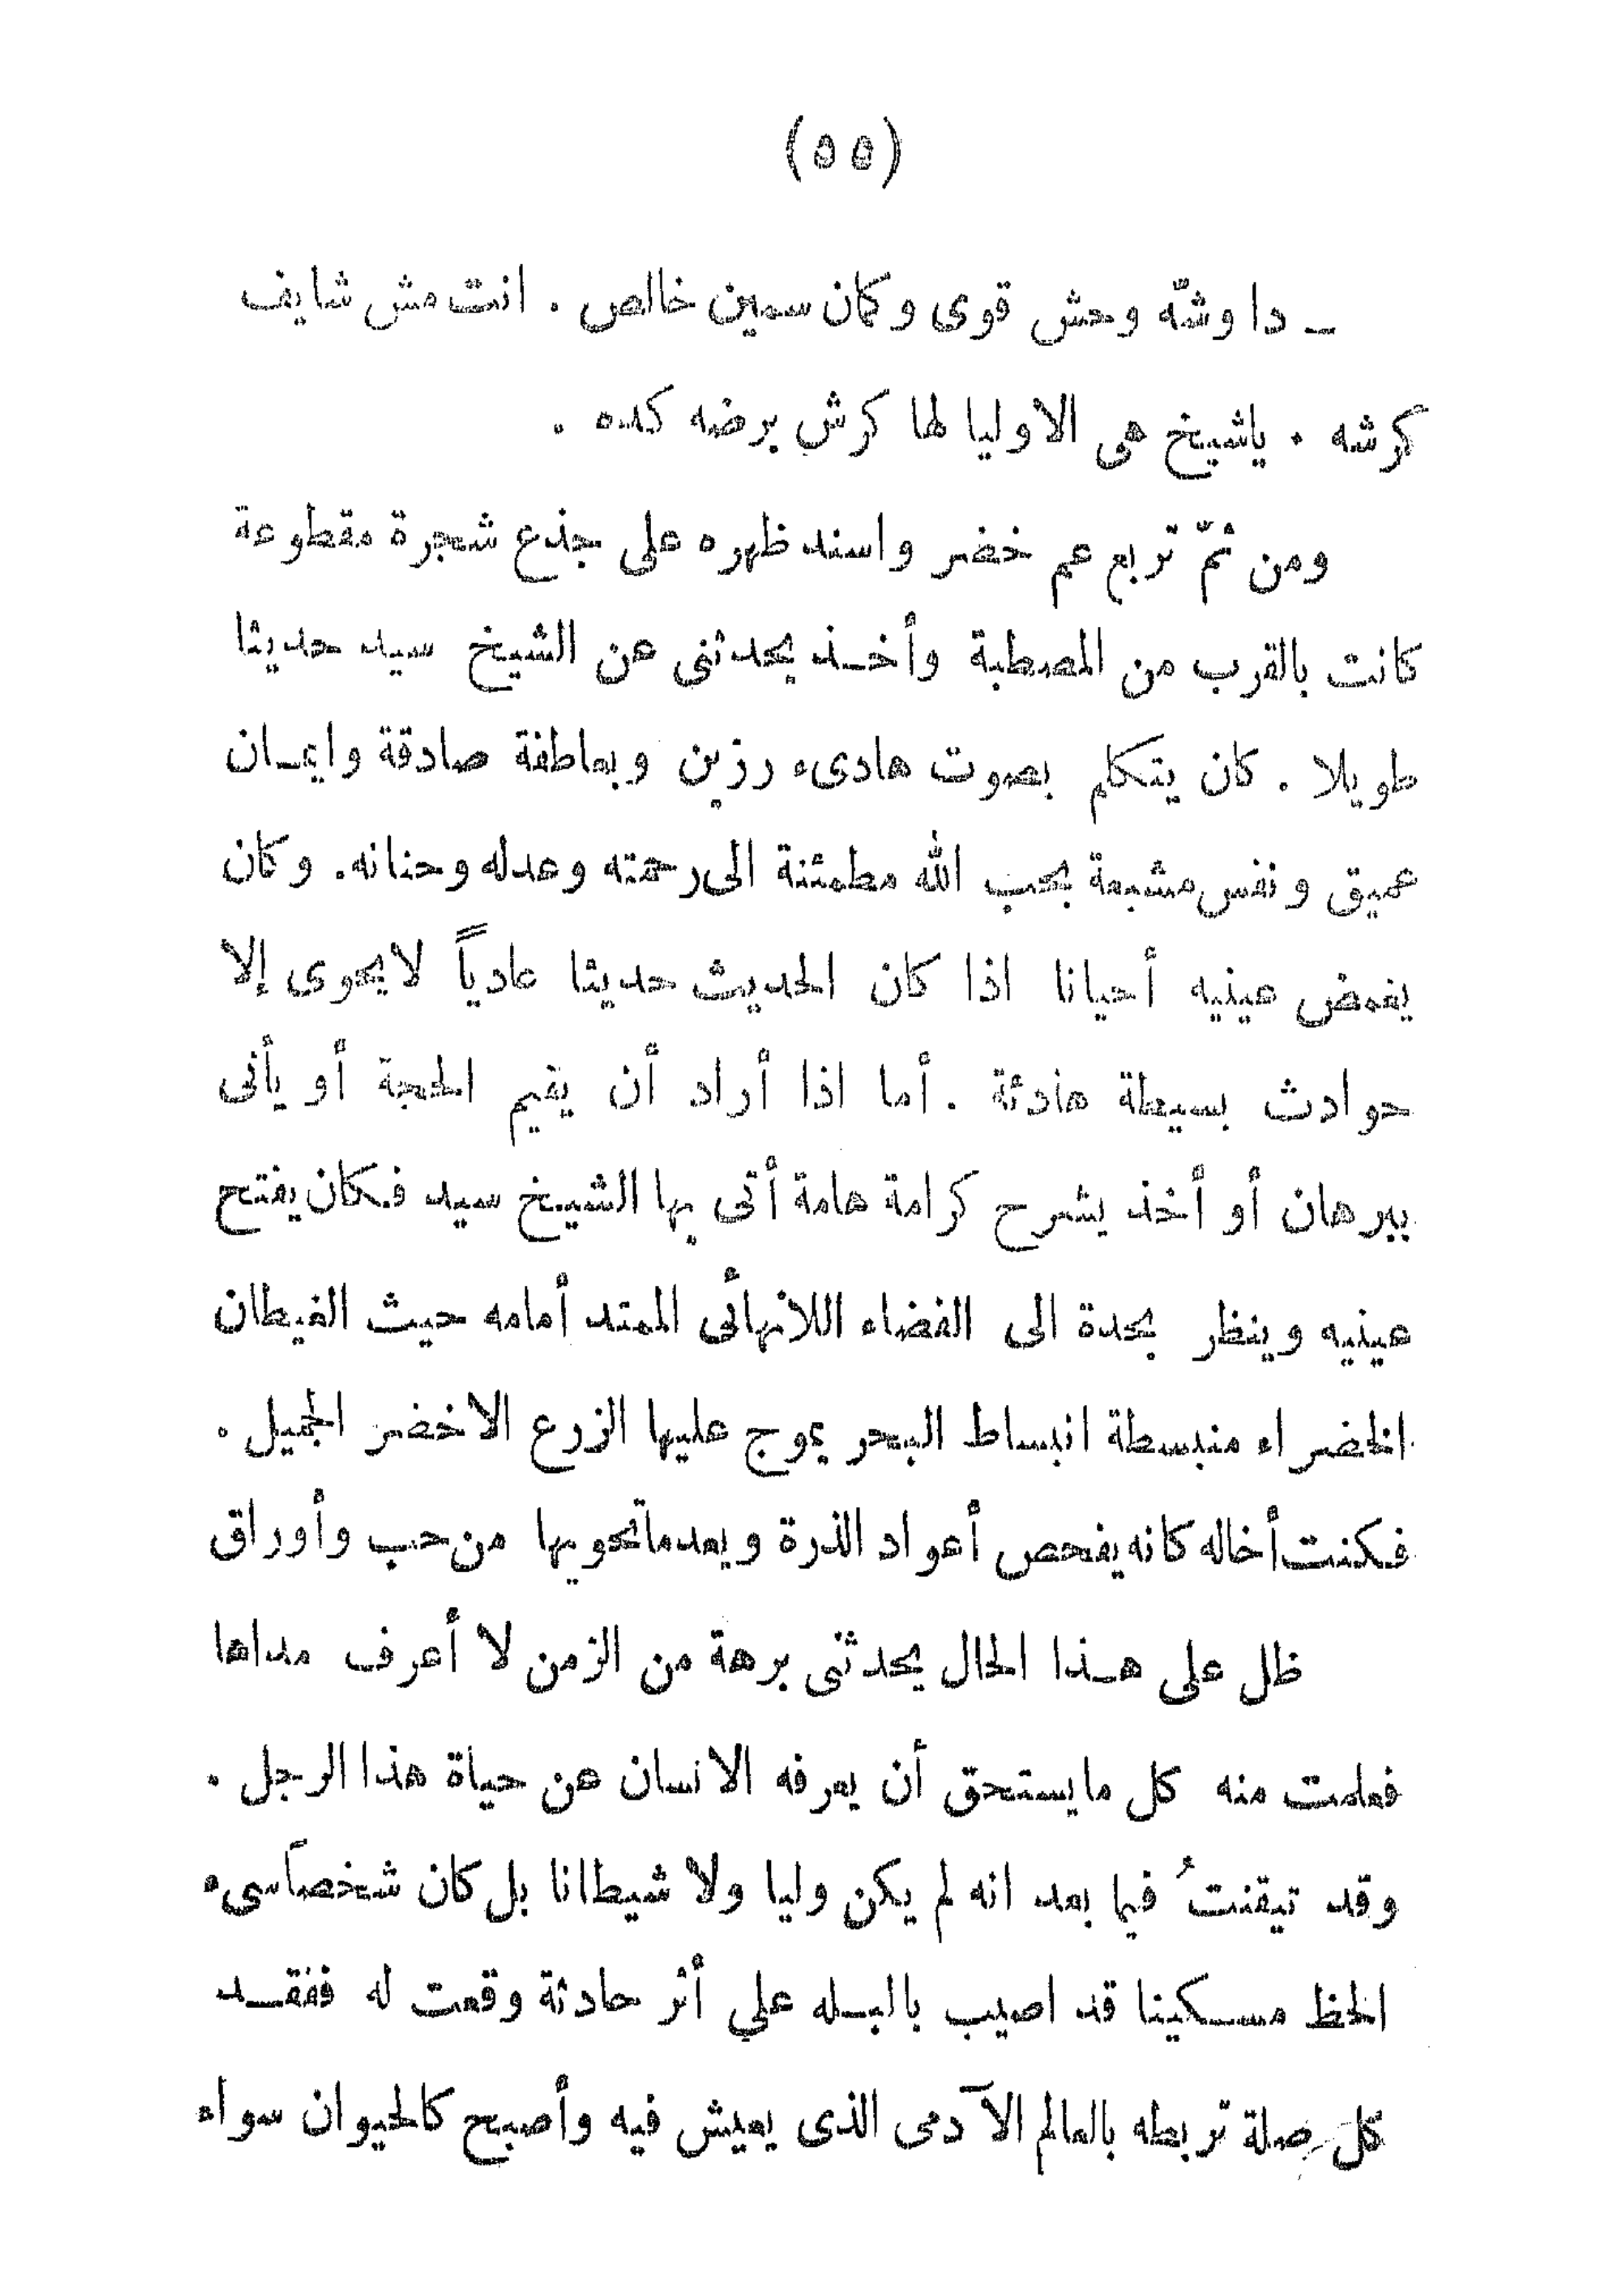 (٥٥)
ـ دا وشّه وحش قوى وكمان سمين خالص . انت مش شايف
كرشه . ياشيخ هى الاوليا لها كرش برضه كده .
ومن ثمّ تربع عم خضر واسند ظهره على جذع شجرة مقطوعة
كانت بالقرب من المصطبة وأخـذ يحدثنى عن الشيخ سيد حديثا
طويلا . كان يتكلم بصوت هادىء رزين وبعاطفة صادقة وايمـان
عميق ونفس مشبعة بحب الله مطمئنة الى رحمته وعدله وحنانه. وكان
يغمض عينيه أحيانا اذا كان الحديث حديثا عادياً لايحوى إلا
حوادث بسيطة هادئة . أما اذا أراد أن يقيم الحجة أو يأتى
ببرهان أو أخذ يشرح كرامة هامة أتى بها الشيخ سيد فكان يفتح
عينيه وينظر بحدة الى الفضاء اللانهائى الممتد أمامه حيث الغيطان
الخضراء منبسطة انبساط البحر يموج عليها الزرع الاخضر الجميل .
فكنت أخاله كانه يفحص أعواد الذرة ويعد ماتحويها من حب وأوراق
ظل على هـذا الحال يحدثنى برهة من الزمن لا أعرف مداها
فعلمت منه كل مايستحق أن يعرفه الانسان عن حياة هذا الرجل .
وقد تيقنتُ فيما بعد انه لم يكن وليا ولا شيطانا بل كان شخصاً سىء
الحظ مسـكينا قد اصيب بالبـله علي أثر حادثة وقعت له ففقـد
كل صلة تربطه بالعالم الآدمى الذى يعيش فيه وأصبح كالحيوان سواء